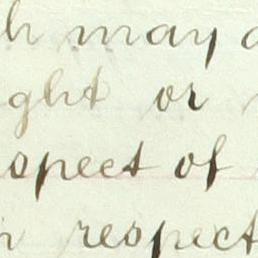 h may a
ght or
spect of
respect